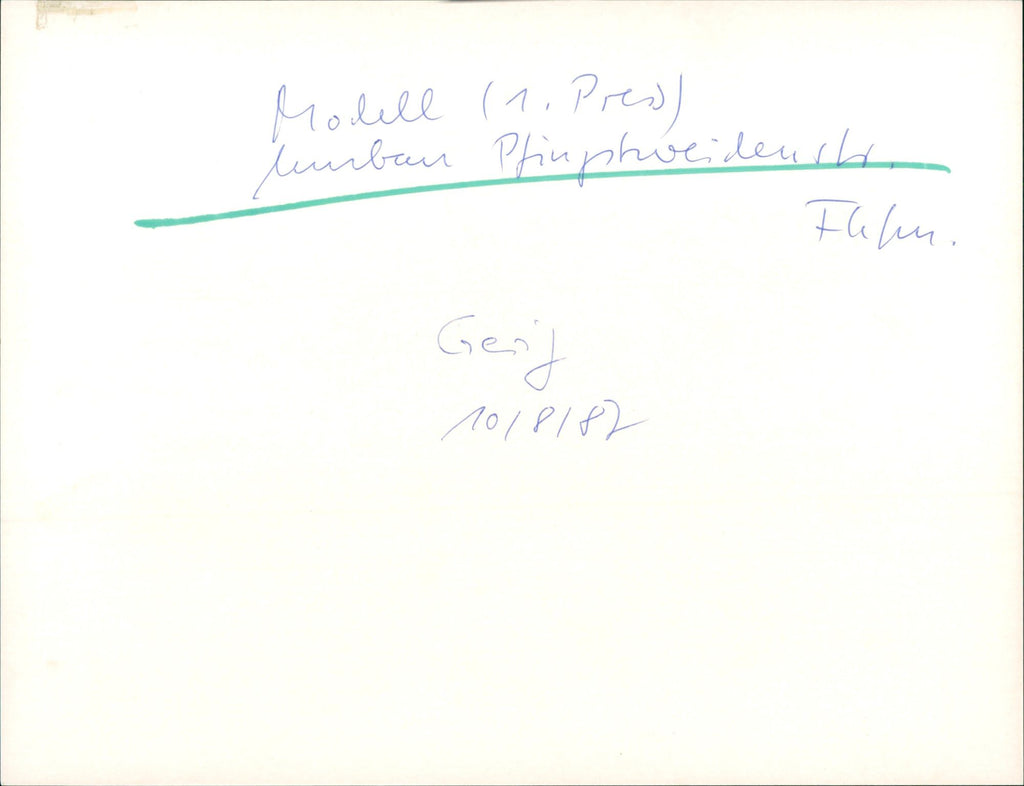 Modell (1. Preis)
Umbau Pfingstweidenstr.
Ffm.
Gerij
10/8/87